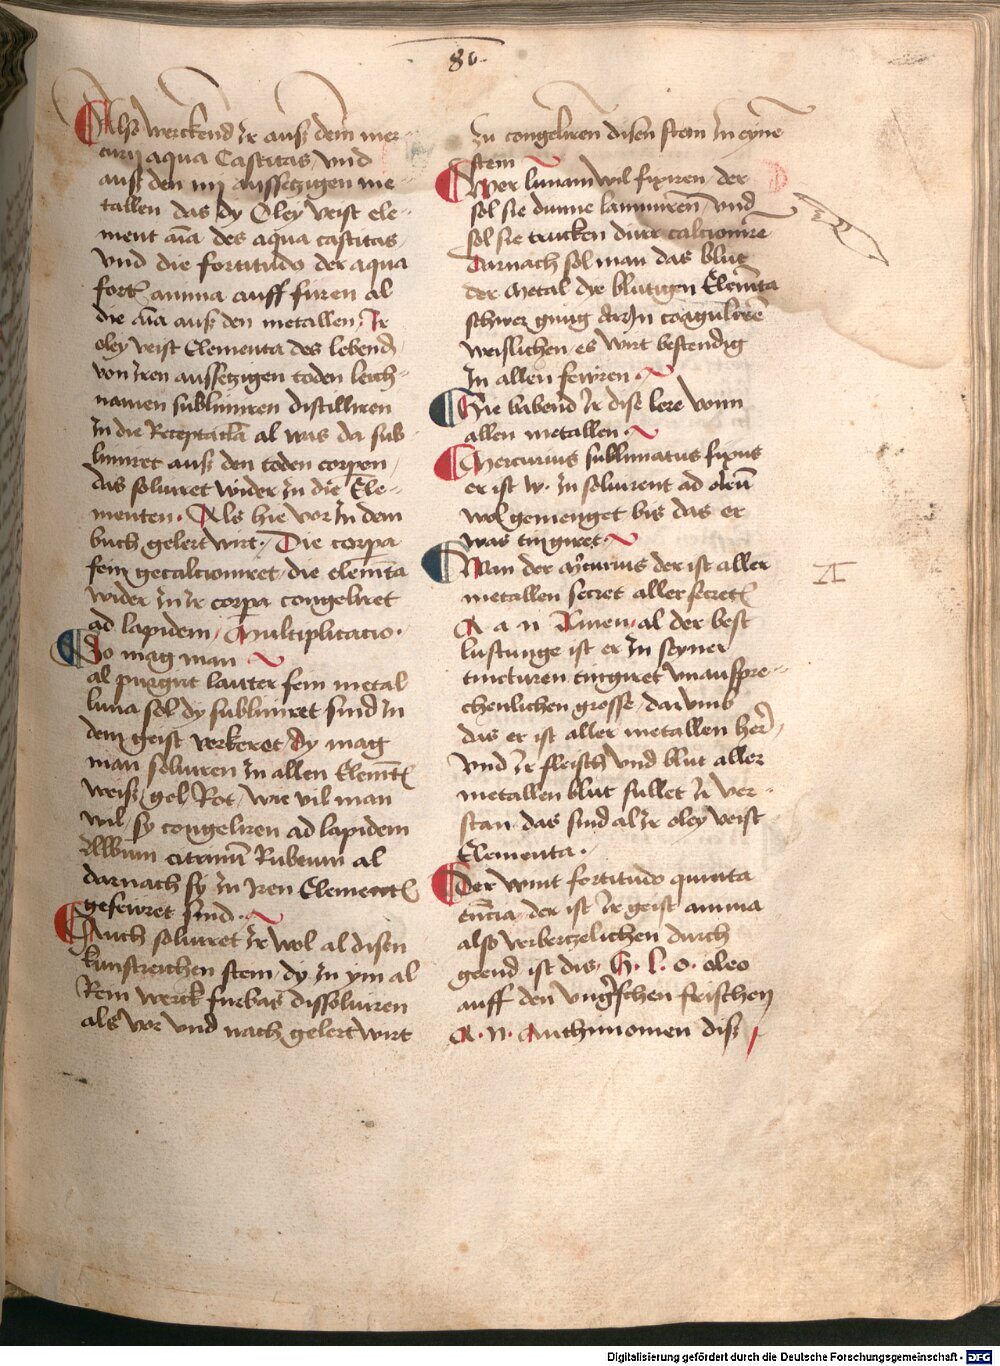 86.
Also werckend Ir auß dem mer-
curij aqua Castitas vnd
auß den iiij aussetzigen me-
tallen das dy Oley veist ele-
ment aīa des aqua castitas
vnd die fortitudo der aqua
fort anima auff füren al
die aīa auß den metallen Ir
oley veist Elementa des lebend
von Iren aussetzigen toden leich-
namen sublimiren distilliren
In die Receptacla al was da sub-
limiret auß den toden corpern
das soluiret wider In die Ele-
menten. Als hie vor In dem
buch gelert wirt. Die corpa
fein gecalcioniret die elemēta
wider In Ir corpa congeliret
ad lapidem Multiplicatio.
So mag man
al purgirt lauter fein metal
luna sol dy sublimiret sind In
dem geist verkeret Dy mag
man soluiren In allen Elemēt
weiß gel Rot wie vil man
wil sy congeliren ad lapidem
Album citrinū Rubeum al
darnach sy In Iren Element
gefewret sind.
Auch soluiret Ir wol al disen
kunstreichen stein dy In ym al
Rein werck furbas dissoluiren
als vor vnd nach gelert wirt
zu congeliren disen stein In eyne
stein
Wer lunam wil fixiren der
sol sie dunne laminiren vnd
sol sie trucken dürr calcionire
Darnach sol man das blut
der Metal die blutigen Elemēta
schwer ging darIn coagulirē
weislichen es wirt bestendig
In allen fewren
Hie habend Ir dise lere vonn
allen metallen
Mercurius sublimatus fixus
er ist w. In soluirent ad oleū
wol gemenget bis das er
was tingiret
Wan der Mercurius der ist aller
metallen secret aller secret
A a n Rmen al der best
lustunge ist er In seyner
tincturen tingiret vnausspre-
chenlichen grosse darumb
das er ist aller metallen her
vnd Ir fleisch vnd blut aller
metallen blut sullet Ir ver-
stan das sind al Ir oley veist
Elementa.
Der wint fortitudo quinta
encia der ist Ir geist anima
also verbertzelichen durch
geend ist dis G. l. o. oleo
auff den vngrschen frischen
A. N. Anthimonien diß
Digitalisierung gefördert durch die Deutsche Forschungsgemeinschaft - DFG